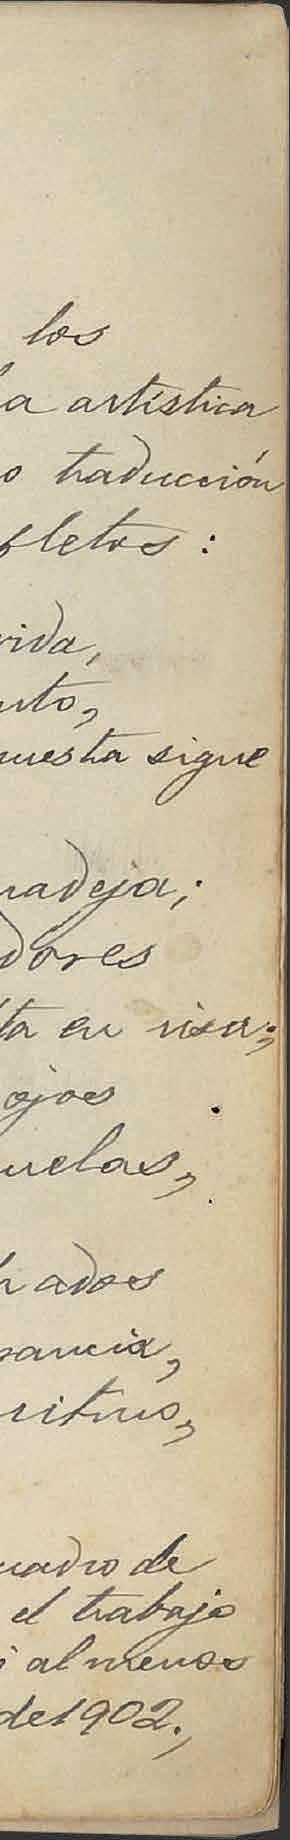 los
la artística
o traducción
fletos:
vida,
nto,
uesta sigue
nadeja;
dores
ta en risa;
ojos
uelas,
hados
sancia,
ritmo,
uadro de
el trabajo
al menos
de 1902.,